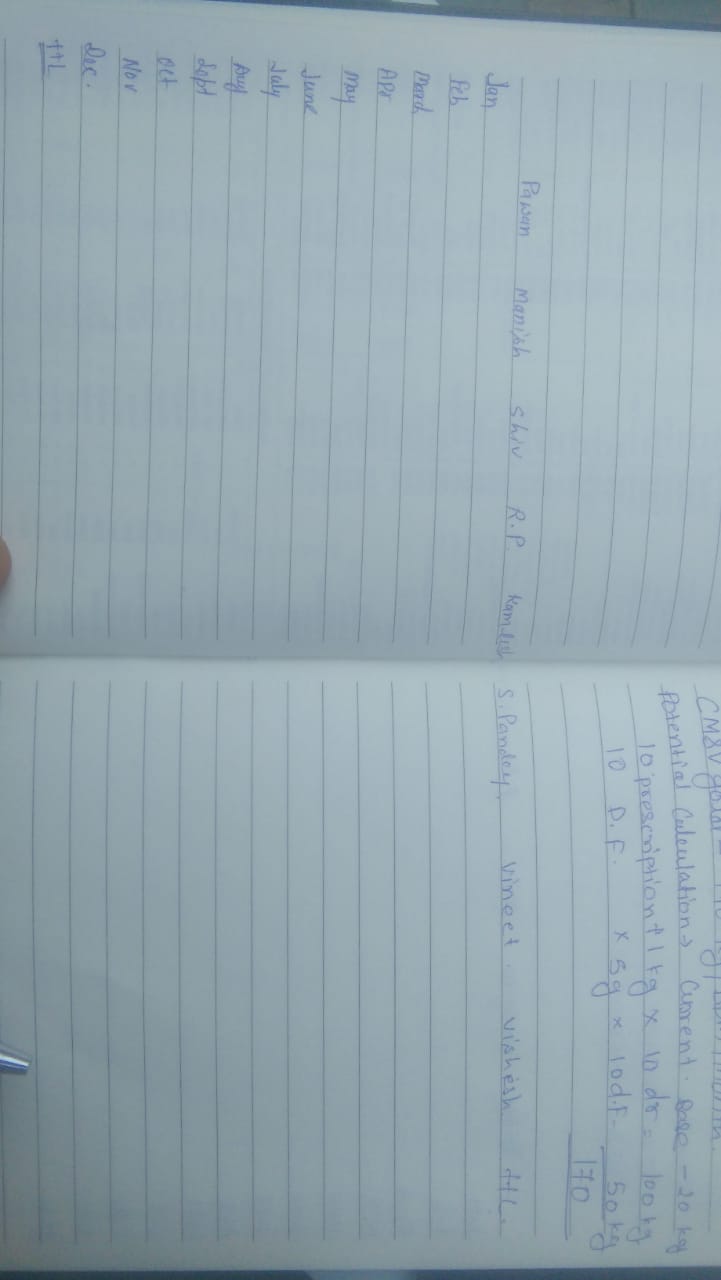 Potential Calculation → Current. Base - 20 kg
10 prescription + 1 kg x 10 dr = 100 kg
10 D.F. x 5g x 10 d.F - 50 kg
170
Pawan Manish Shiv R.P. Kamlesh S. Pandey. Vineet. Vishesh ttL.
Jan
Feb
March
Apr
May
June
July
Aug
Sept
Oct
Nov
Dec.
ttL